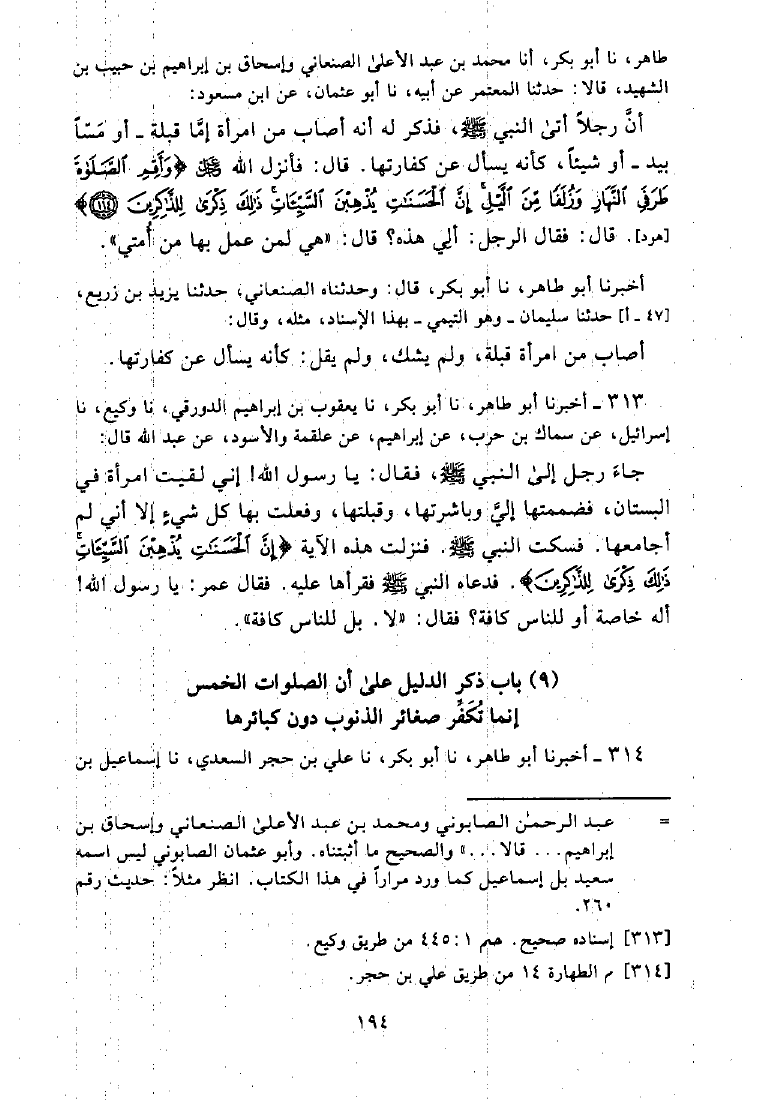 طاهر، نا أبو بكر، أنا محمد بن عبد الأعلىٰ الصنعاني وإسحاق بن إبراهيم بن حبيب بن
الشهيد، قالا: حدثنا المعتمر عن أبيه، نا أبو عثمان، عن ابن مسعود:
أنَّ رجلاً أتىٰ النبي ﷺ، فذكر له أنه أصاب من امرأة إمَّا قبلة ـ أو مَسّاً
بيد ـ أو شيئاً، كأنه يسأل عن كفارتها. قال: فأنزل الله ﷺ ﴿وَأَقِمِ ٱلصَّلَوٰةَ
طَرَفَيِ ٱلنَّهَارِ وَزُلَفًا مِّنَ ٱلَّيْلِ إِنَّ ٱلْحَسَنَٰتِ يُذْهِبْنَ ٱلسَّيِّـَٔاتِ ذَٰلِكَ ذِكْرَىٰ لِلذَّٰكِرِينَ ١١٤﴾
[هود]. قال: فقال الرجل: ألي هذه؟ قال: «هي لمن عمل بها من أُمتي».
أخبرنا أبو طاهر، نا أبو بكر، قال: وحدثناه الصنعاني، حدثنا يزيد بن زريع،
[٤٧ ـ أ] حدثنا سليمان ـ وهو التيمي ـ بهذا الإسناد، مثله، وقال:
أصاب من امرأة قبلة، ولم يشك، ولم يقل: كأنه يسأل عن كفارتها.
٣١٣ ـ أخبرنا أبو طاهر، نا أبو بكر، نا يعقوب بن إبراهيم الدورقي، نا وكيع، نا
إسرائيل، عن سماك بن حرب، عن إبراهيم، عن علقمة والأسود، عن عبد الله قال:
جاءَ رجل إلىٰ النبي ﷺ، فقال: يا رسول الله! إني لقيت امرأة في
البستان، فضممتها إليَّ وباشرتها، وقبلتها، وفعلت بها كل شيءٍ إلا أني لم
أجامعها. فسكت النبي ﷺ. فنزلت هذه الآية ﴿إِنَّ ٱلْحَسَنَٰتِ يُذْهِبْنَ ٱلسَّيِّـَٔاتِ
ذَٰلِكَ ذِكْرَىٰ لِلذَّٰكِرِينَ﴾. فدعاه النبي ﷺ فقرأها عليه. فقال عمر: يا رسول الله!
أله خاصة أو للناس كافة؟ فقال: «لا. بل للناس كافة».
(٩) باب ذكر الدليل علىٰ أن الصلوات الخمس
إنما تُكَفِّر صغائر الذنوب دون كبائرها
٣١٤ ـ أخبرنا أبو طاهر، نا أبو بكر، نا علي بن حجر السعدي، نا إسماعيل بن
= عبد الرحمٰن الصابوني ومحمد بن عبد الأعلىٰ الصنعاني وإسحاق بن
إبراهيم... قالا...» والصحيح ما أثبتناه. وأبو عثمان الصابوني ليس اسمه
سعيد بل إسماعيل كما ورد مراراً في هذا الكتاب. انظر مثلاً: حديث رقم
٢٦٠.
[٣١٣] إسناده صحيح. حم ١: ٤٤٥ من طريق وكيع.
[٣١٤] م الطهارة ١٤ من طريق علي بن حجر.
١٩٤